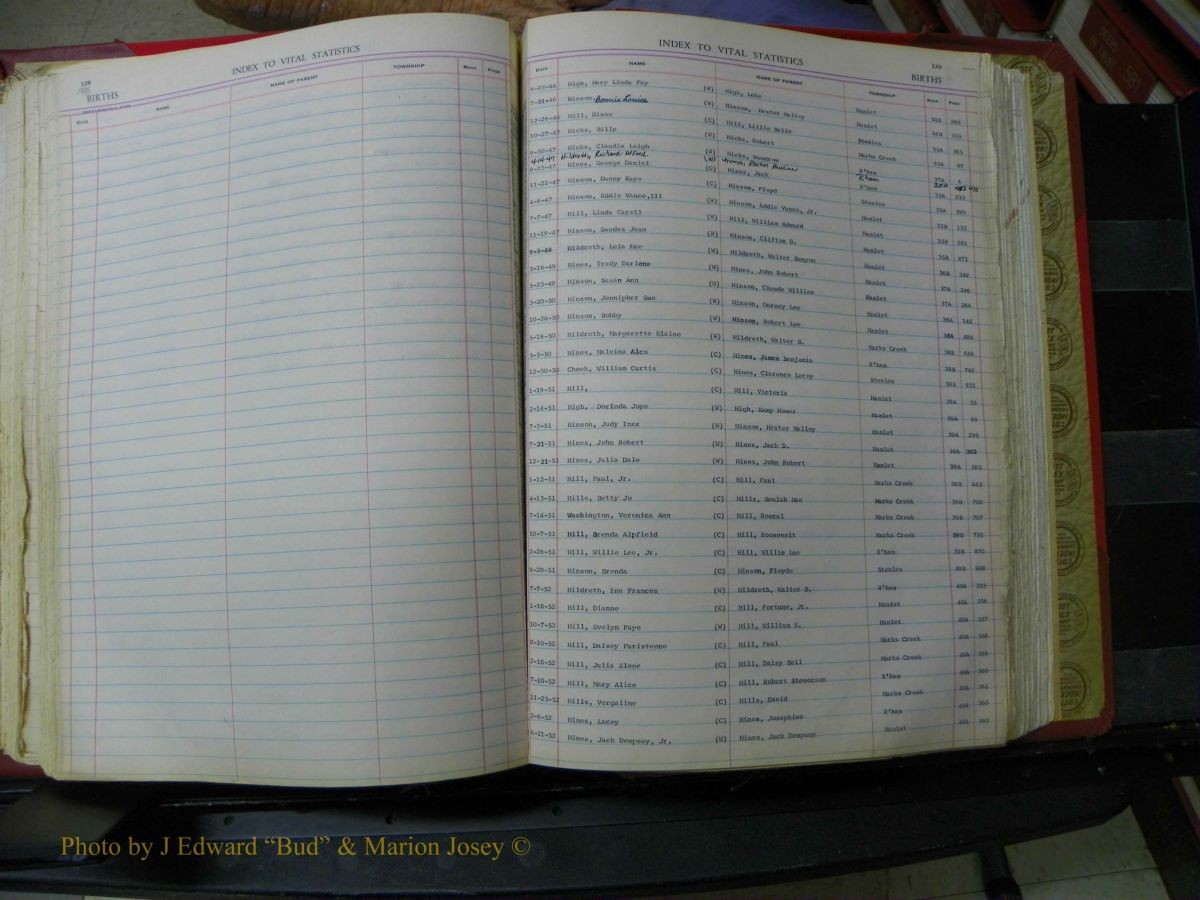 128
INDEX TO VITAL STATISTICS
BIRTHS
Date NAME NAME OF PARENT TOWNSHIP Book Page
INDEX TO VITAL STATISTICS
129
BIRTHS
Date NAME NAME OF PARENT TOWNSHIP Book Page
6-25-46 High, Mary Linda Fay (W) High, Luke Hamlet 34B
7-31-46 Hinson, Bonnie Louise (W) Hinson, Hester Malloy Hamlet 34B 319
12-26-46 Hill, Diann (C) Hill, Lillie Belle Steeles 35A
10-27-47 Hicks, Billy (W) Hicks, Robert Marks Creek 35A 87
9-30-47 Hicks, Claudia Leigh (W) Hicks, Woodrow R'ham 37A
Hildreth, Richard Alfred (W) Rachel Pauline R'ham
Hines, George Daniel (C) Hines, Jack R'ham 35A 233
11-22-47 Hinson, Danny Kaye (C) Hinson, Floyd Steeles 35A 390
4-6-47 Hinson, Eddie Vance, III (W) Hinson, Eddie Vance, Jr. Hamlet 35B 131
7-7-47 Hill, Linda Caroll (W) Hill, William Edward Hamlet 35B 181
11-19-47 Hinson, Sandra Jean (W) Hinson, Clifton D. Hamlet 35B 471
9-3-48 Hildreth, Lela Mae (W) Hildreth, Walter Bunyon Hamlet 36B 349
5-16-49 Hines, Trudy Darlene (W) Hines, John Robert Hamlet 37A 246
5-25-49 Hinson, Susan Ann (W) Hinson, Claude William Hamlet 37A 284
5-20-50 Hinson, Jennipher Sue (W) Hinson, Gurney Lee Hamlet 38A 142
10-26-50 Hinson, Bobby (W) Hinson, Robert Lee Hamlet 38A 486
5-18-50 Hildreth, Margarette Elaine (W) Hildreth, Walter B. Marks Creek 38B 666
3-3-50 Hines, Malvina Alco (C) Hines, James Benjamin R'ham 38B 783
12-30-50 Cheek, William Curtis (C) Hines, Clarence Leroy Steeles 38B 931
1-19-51 Hill, (C) Hill, Victoria Hamlet 39A 33
2-14-51 High, Dorinda Joye (W) High, Kemp Homer Hamlet 39A 69
7-3-51 Hinson, Judy Inez (W) Hinson, Hester Malloy Hamlet 39A 299
7-21-51 Hines, John Robert (W) Hines, Jack D. Hamlet 39A 302
12-21-51 Hines, Julia Dale (W) Hines, John Robert Hamlet 39A 583
1-12-51 Hill, Paul, Jr. (C) Hill, Paul Marks Creek 39B 643
4-13-51 Hills, Betty Jo (C) Hills, Beulah Mae Marks Creek 39B 700
7-14-51 Washington, Veronica Ann (C) Hill, Roscal Marks Creek 39B 707
10-7-51 Hill, Brenda Alpfield (C) Hill, Roosevelt Marks Creek 39B 731
2-26-51 Hill, Willie Lee, Jr. (C) Hill, Willie Lee R'ham 39B 870
9-20-51 Hinson, Brenda (C) Hinson, Floyde Steeles 39B 968
7-7-52 Hildreth, Ina Frances (W) Hildreth, Walter B. R'ham 40A 355
1-16-52 Hill, Dianne (C) Hill, Fortune, Jr. Hamlet 40A 356
10-7-52 Hill, Evelyn Faye (W) Hill, William E. Hamlet 40A 357
8-10-52 Hill, Daisey Paristeene (C) Hill, Paul Marks Creek 40A 358
2-18-52 Hill, Julia Elene (C) Hill, Daisy Bell Marks Creek 40A 359
7-10-52 Hill, Mary Alice (C) Hill, Robert Steverson R'ham 40A 360
11-23-52 Hills, Vergaline (C) Hills, David Marks Creek 40A 361
3-6-52 Hines, Lacey (C) Hines, Josephine R'ham 40A 362
6-21-52 Hines, Jack Dempsey, Jr. (W) Hines, Jack Dempsey Hamlet 40A 363
Photo by J Edward “Bud” & Marion Josey ©